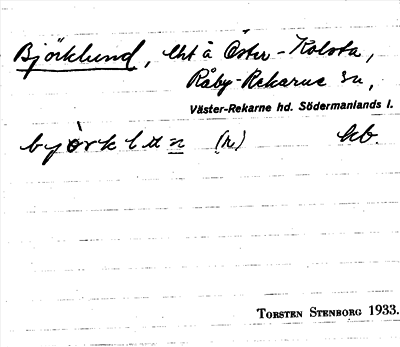 Björklund, lht å Öster-Kolsta,
Råby-Rekarne sn,
Väster-Rekarne hd. Södermanlands l.
björklun (n)
TORSTEN STENBORG 1933.